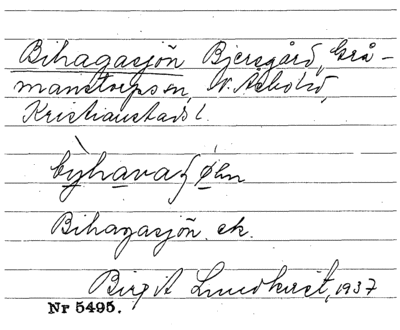 Bihagasjön Bjersgård, Grå-
manstorps sn, N. Åsbo hd,
Kristianstads l.
Bihagasjön. ek.
Birgit Lundkvist, 1937
Nr 5495.